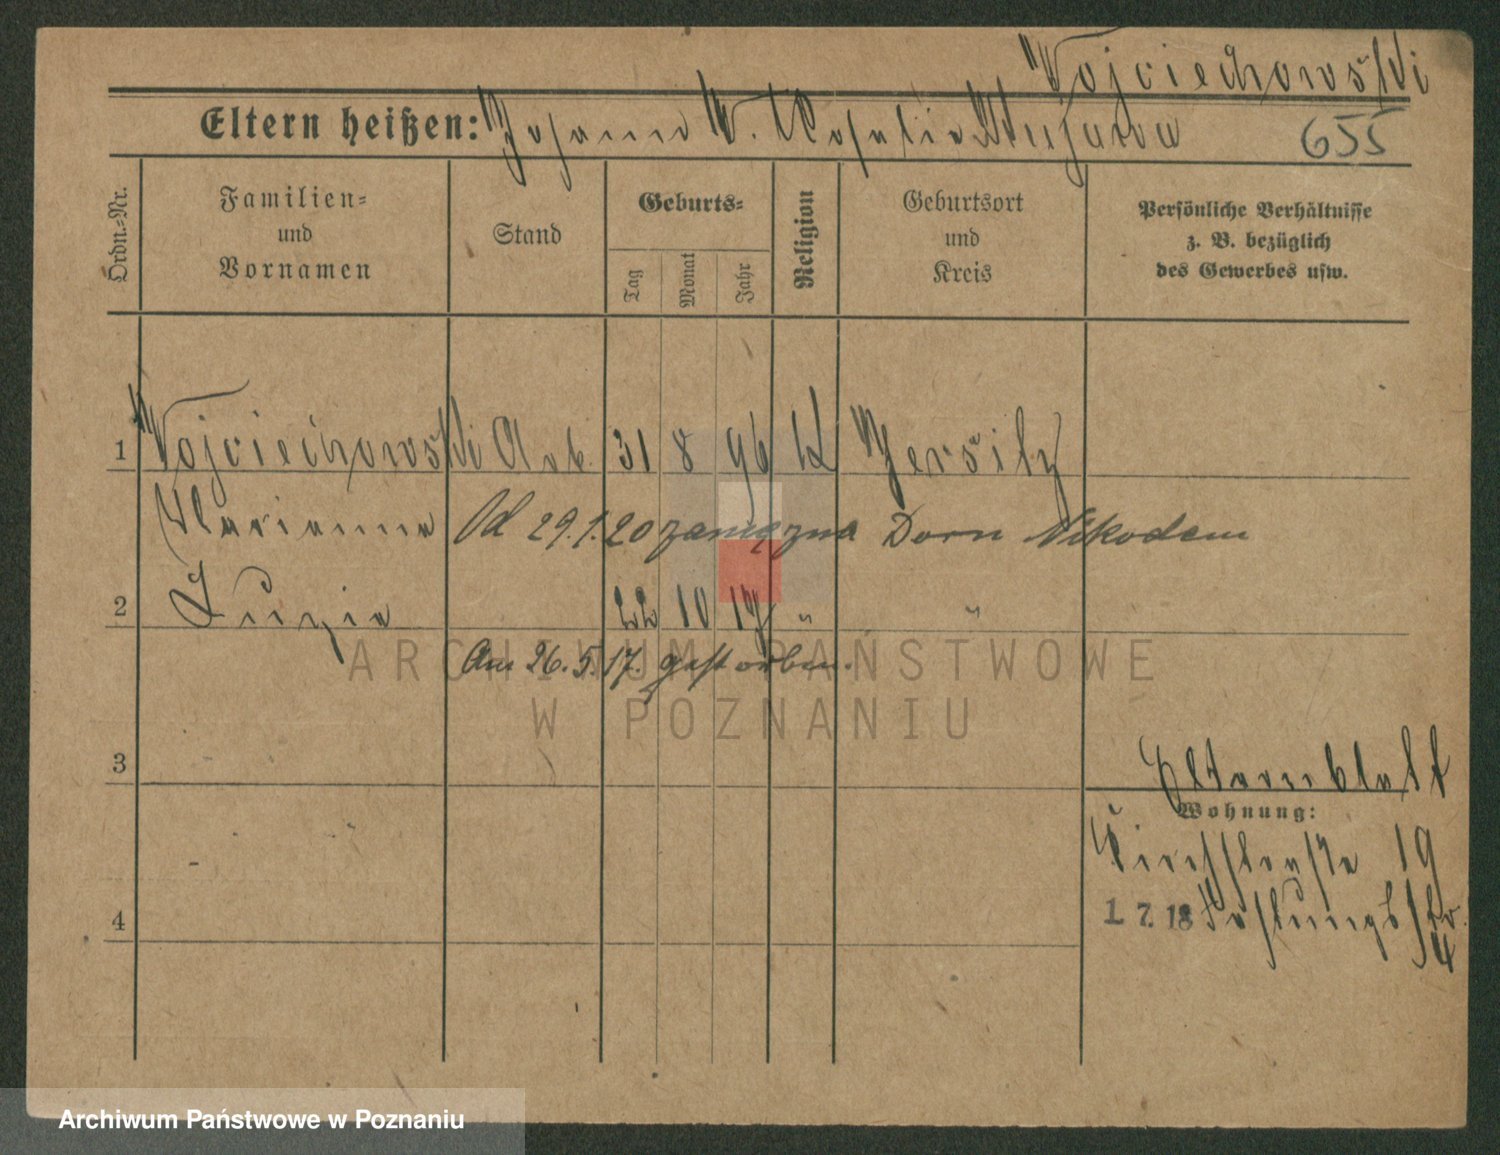 Wojciechowski
Eltern heißen: Johann W. Rosalie
655
Ordn.-Nr.
Familien-
und
Vornamen
Stand
Geburts-
Tag
Monat
Jahr
Religion
Geburtsort
und
Kreis
Persönliche Verhältnisse
z. B. bezüglich
des Gewerbes usw.
1 Wojciechowski Arb. 31 8 96 k Jersitz
Marianna Od 29.1.20 zamężna Dorn Nikodem
2 Luzia 22 10 17 " "
Am 26.5.17. gestorben.
ARCHIWUM PAŃSTWOWE
W POZNANIU
3
Elternblatt
Wohnung:
19
4
1. 7. 18
Archiwum Państwowe w Poznaniu